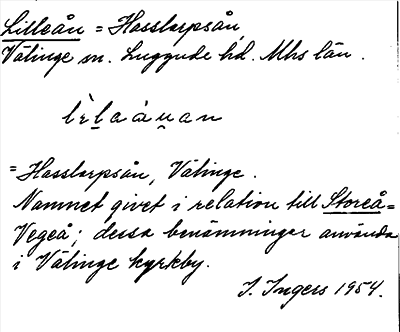 Lilleån = Hasslarpsån,
Välinge sn. Luggude hd. Mhs län.
lìl̠aáu̯an
= Hasslarpsån, Välinge.
Namnet givet i relation till Storeå =
Vegeå; dessa benämningar använda
i Välinge kyrkby.
I. Ingers 1954.